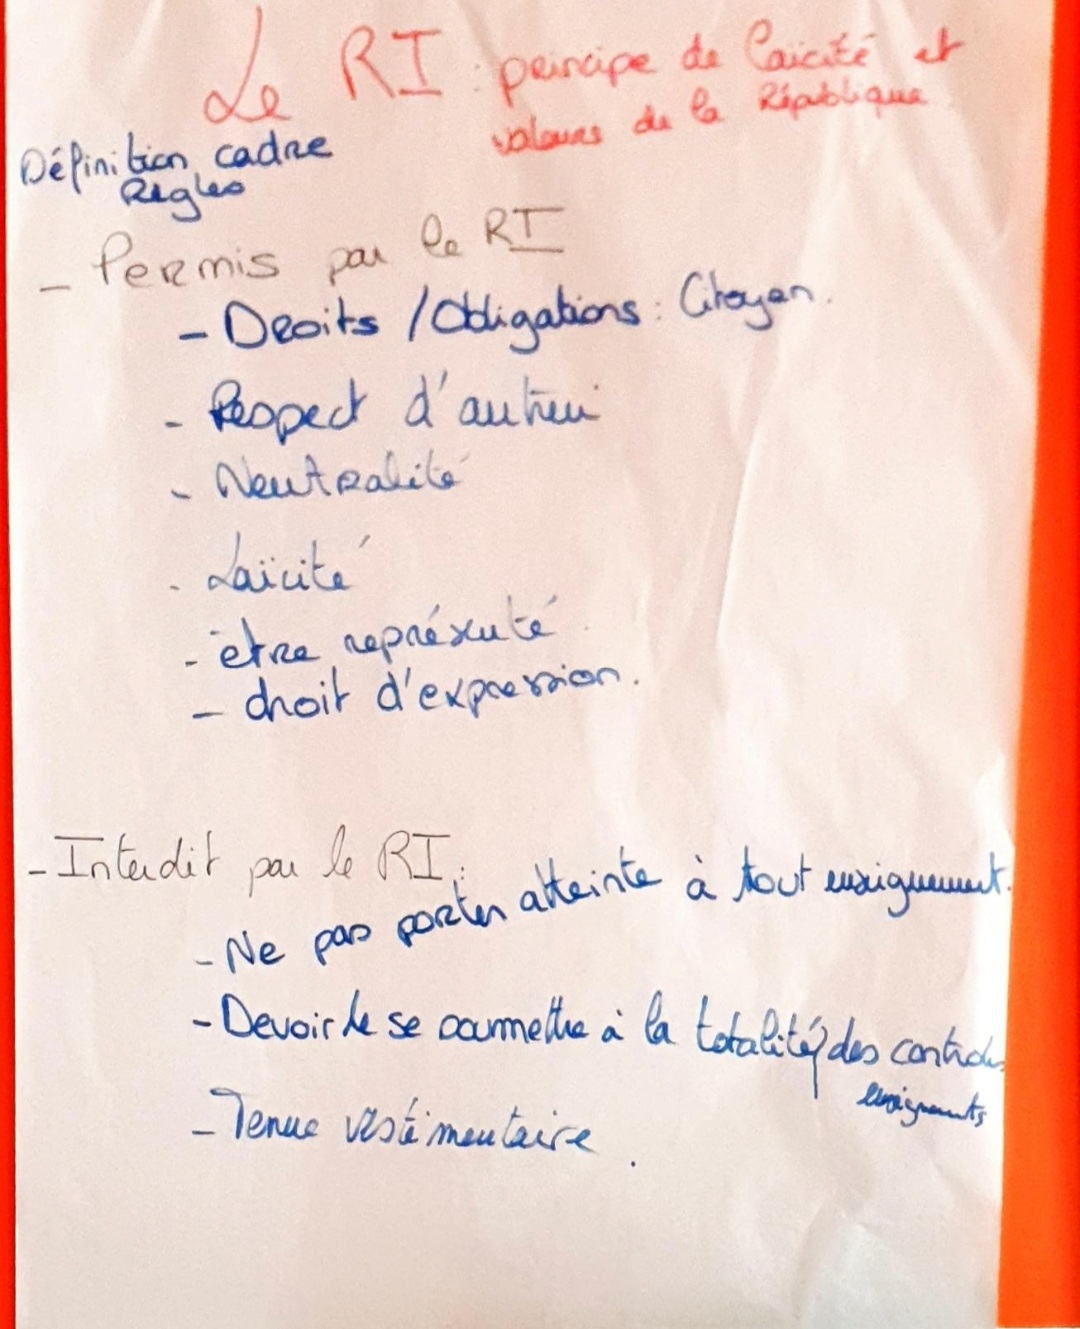 Le RI : principe de laïcité et
valeurs de la République
Définition cadre
Règles
- Permis par le RI
- Droits / Obligations : Citoyen.
- Respect d'autrui
- Neutralité
- Laïcité
- être représenté
- droit d'expression.
- Interdit par le RI :
- Ne pas porter atteinte à tout enseignement.
- Devoir de se soumettre à la totalité des contrôles
enseignements
- Tenue vestimentaire.